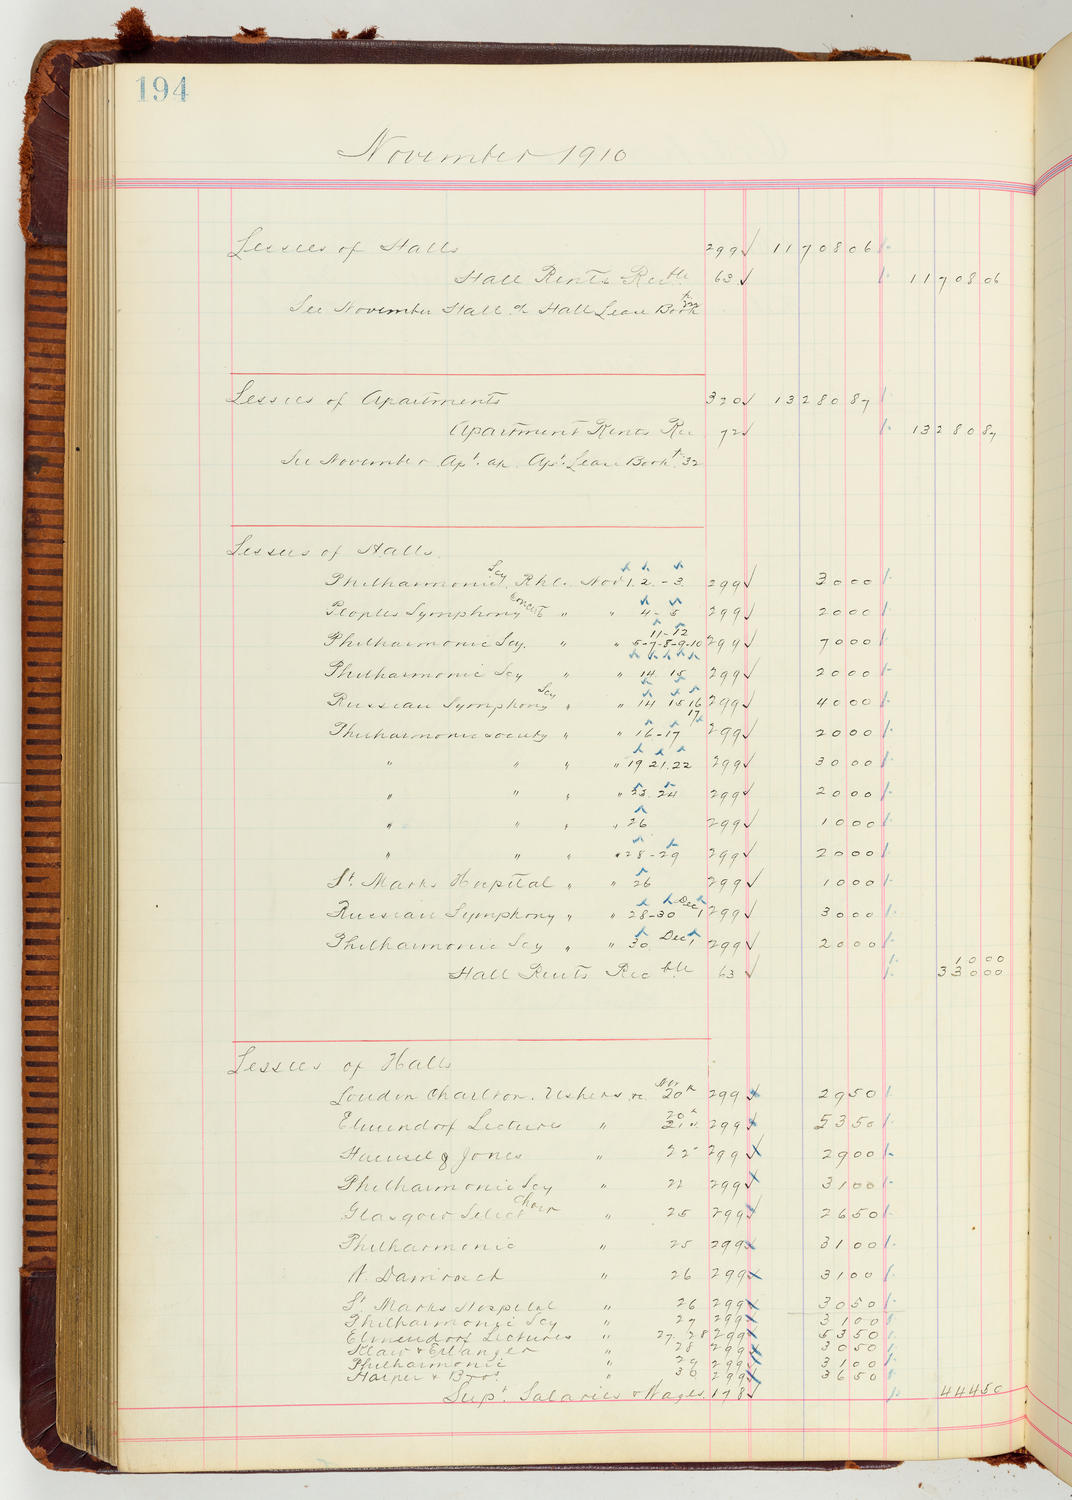 194
November 1910
Lessees of Halls 299 11 708 06
Hall Rents Recble 63 11 708 06
See November Hall a/c Hall Lease Book
Lessees of Apartments 320 13 280 87
Apartment Rents Rec 72 13 280 87
See November Apt. a/c Apt. Lease Book 32
Lessees of Halls
Philharmonic Scy. Rhl. Nov 1. 2. - 3. 299 30 00
Peoples Symphony Concert " " 4 - 5 299 20 00
Philharmonic Scy. " " 5-7-8-9-10 11-12 299 70 00
Philharmonic Scy " " 14. 15 299 20 00
Russian Symphony Scy " " 14 15 16 17 299 40 00
Philharmonic Society " " 16-17 299 20 00
" " " " 19 21. 22 299 30 00
" " " " 23. 24 299 20 00
" " " " 26 299 10 00
" " " " 28-29 299 20 00
St. Marks Hospital " " 26 299 10 00
Russian Symphony " " 28-30 Dec 1 299 30 00
Philharmonic Scy " " 30 Dec 1 299 20 00
10 00
Hall Rents Recble 63 330 00
Lessees of Halls
Loudon Charlton. Ushers &c Nov 20 299 29 50
Elmendorf Lecture " 20 21 299 53 50
Haensel & Jones " 22 299 29 00
Philharmonic Scy " 22 299 31 00
Glasgow Select Choir " 25 299 26 50
Philharmonic " 25 299 31 00
W. Damrosch " 26 299 31 00
St. Marks Hospital " 26 299 30 50
Philharmonic Scy " 27 299 31 00
Elmendorf Lectures " 27. 28 299 53 50
Klaw & Erlanger " 28 299 30 50
Philharmonic " 29 299 31 00
Harper & Bros. " 30 299 36 50
Supt. Salaries & Wages. 178 444 50